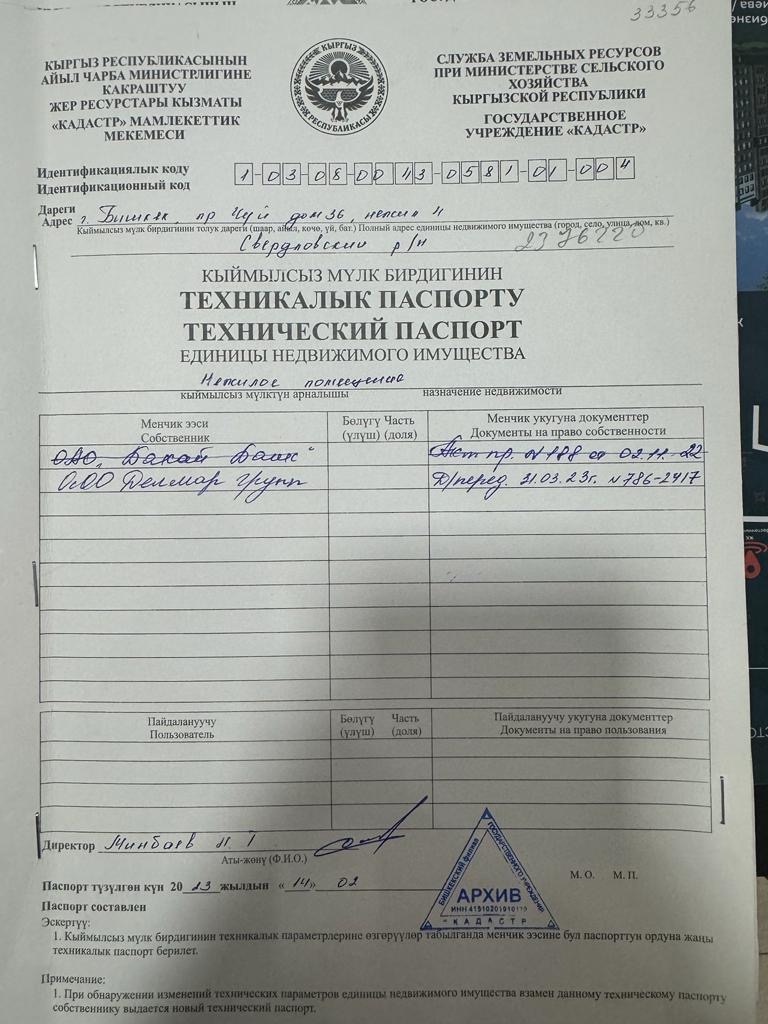 33356
КЫРГЫЗ РЕСПУБЛИКАСЫНЫН
АЙЫЛ ЧАРБА МИНИСТРЛИГИНЕ
КАКРАШТУУ
ЖЕР РЕСУРСТАРЫ КЫЗМАТЫ
«КАДАСТР» МАМЛЕКЕТТИК
МЕКЕМЕСИ
КЫРГЫЗ
РЕСПУБЛИКАСЫ
СЛУЖБА ЗЕМЕЛЬНЫХ РЕСУРСОВ
ПРИ МИНИСТЕРСТВЕ СЕЛЬСКОГО
ХОЗЯЙСТВА
КЫРГЫЗСКОЙ РЕСПУБЛИКИ
ГОСУДАРСТВЕННОЕ
УЧРЕЖДЕНИЕ «КАДАСТР»
Идентификациялык коду
Идентификационный код
1-03-08-0043-0581-01-004
Дареги
Адрес г. Бишкек, пр Чуй дом 36, нежил 4
Кыймылсыз мүлк бирдигинин толук дареги (шаар, айыл, көчө, үй, бат.) Полный адрес единицы недвижимого имущества (город, село, улица, дом, кв.)
Свердловский р/н 2376220
КЫЙМЫЛСЫЗ МҮЛК БИРДИГИНИН
ТЕХНИКАЛЫК ПАСПОРТУ
ТЕХНИЧЕСКИЙ ПАСПОРТ
ЕДИНИЦЫ НЕДВИЖИМОГО ИМУЩЕСТВА
Нежилое помещение
кыймылсыз мүлктүн арналышы назначение недвижимости
Менчик ээси
Собственник
Бөлүгү Часть
(үлүш) (доля)
Менчик укугуна документтер
Документы на право собственности
ОАО "Бакай Банк"
Акт пр. N 188 от 02.11.22
ОсОО Делмар групп
Д/перед. 31.03.23г. N 786-2417
Пайдалануучу
Пользователь
Бөлүгү Часть
(үлүш) (доля)
Пайдалануучу укугуна документтер
Документы на право пользования
Директор Минбаев
Аты-жөнү (Ф.И.О.)
М. О. М. П.
Паспорт түзүлгөн күн 20 23 жылдын «14» 02
Паспорт составлен
БИШКЕКСКИЙ ФИЛИАЛ
ГОСУДАРСТВЕННОГО УЧРЕЖДЕНИЯ
АРХИВ
КАДАСТР
Эскертүү:
1. Кыймылсыз мүлк бирдигинин техникалык параметрлерине өзгөрүүлөр табылганда менчик ээсине бул паспорттун ордуна жаңы
техникалык паспорт берилет.
Примечание:
1. При обнаружении изменений технических параметров единицы недвижимого имущества взамен данному техническому паспорту
собственнику выдается новый технический паспорт.